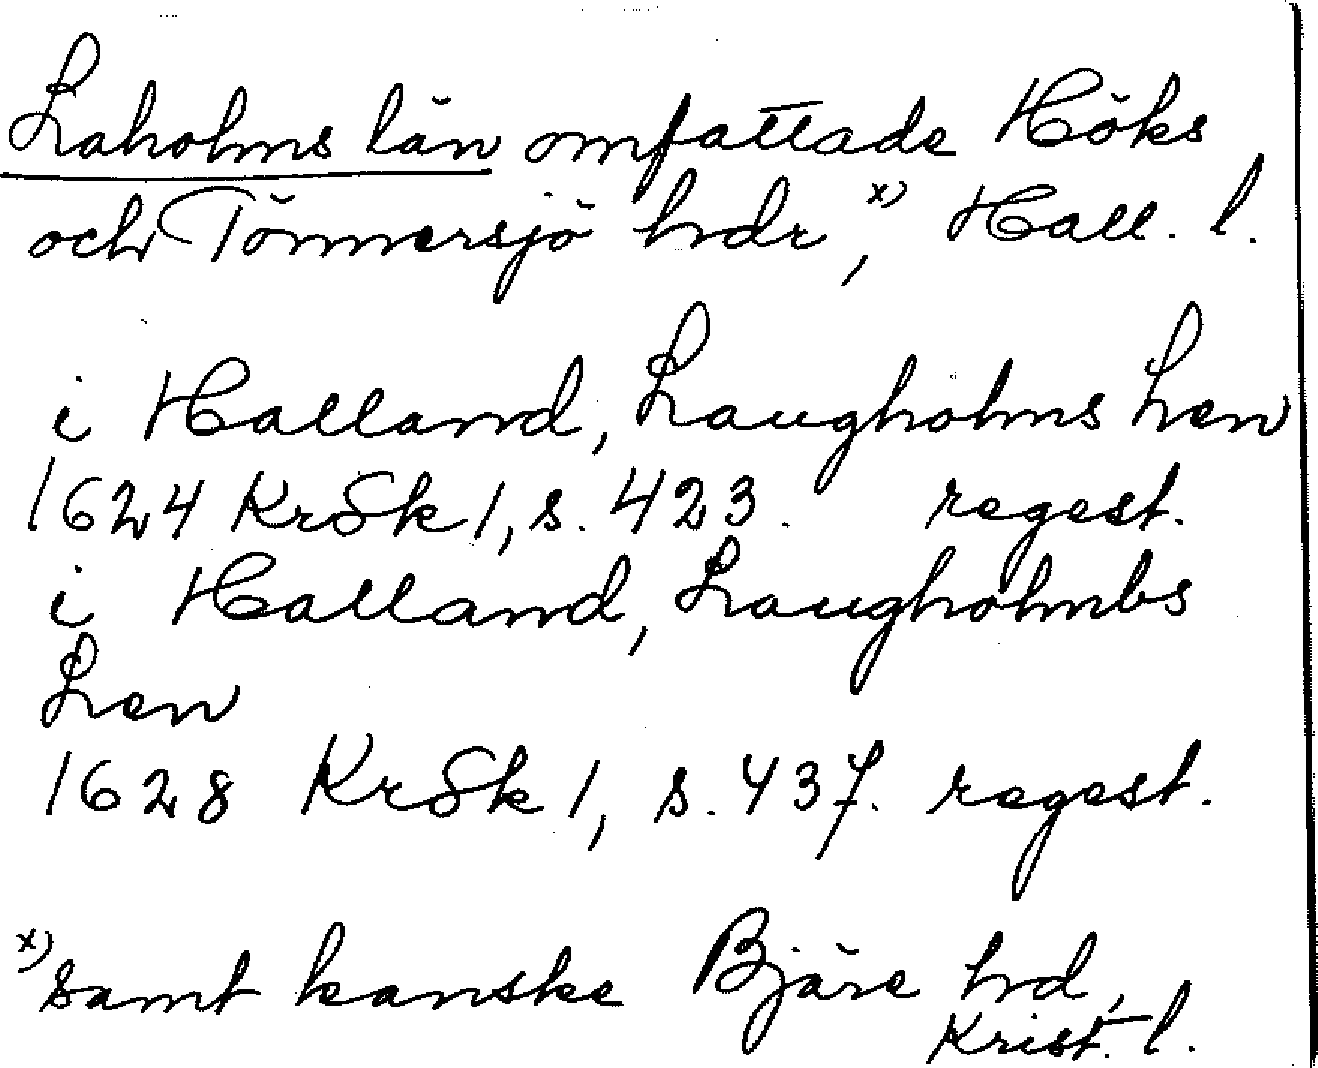 Laholms län omfattade Höks
och Tönnersjö hrdr,x) Hall. l.
i Halland, Laugholms Len
1624 KrSk 1, s. 423. regest.
i Halland, Laugholmbs
Len
1628 KrSk 1, s. 437. regest.
x) samt kanske Bjäre hd,
Krist. l.